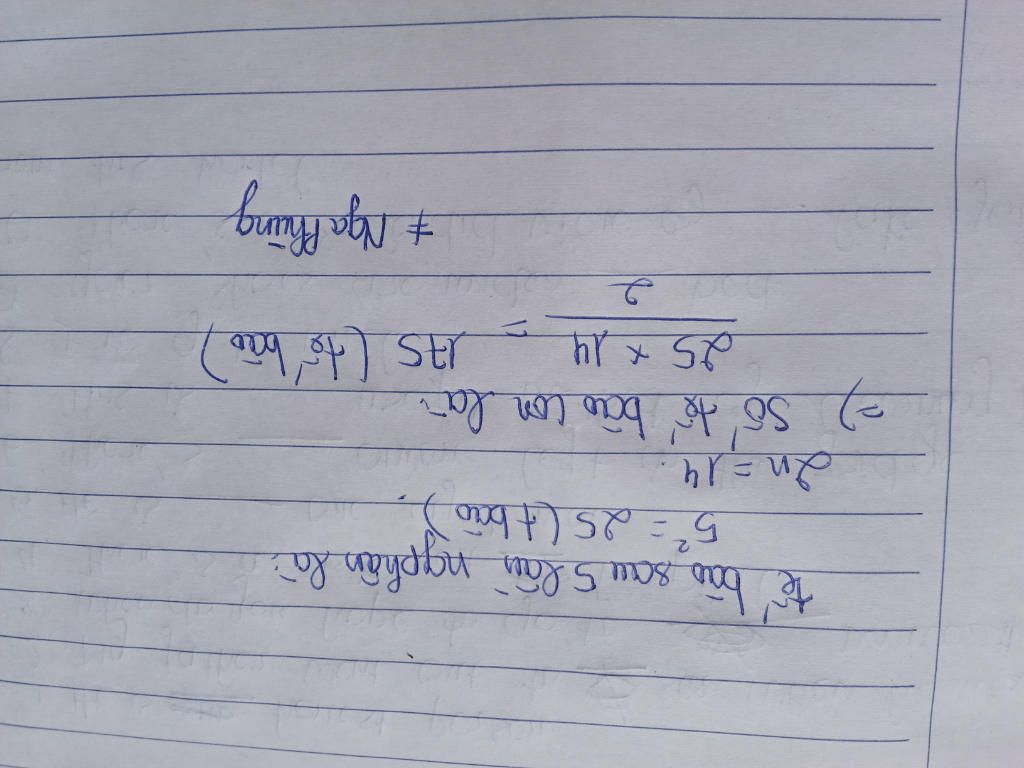 tế bào sau 5 lần ngphân là:
5² = 25 (tbào).
2n = 14.
=) Số tế bào con là:
25 x 14
2
= 175 (tế bào)
≠ Nga Phùng